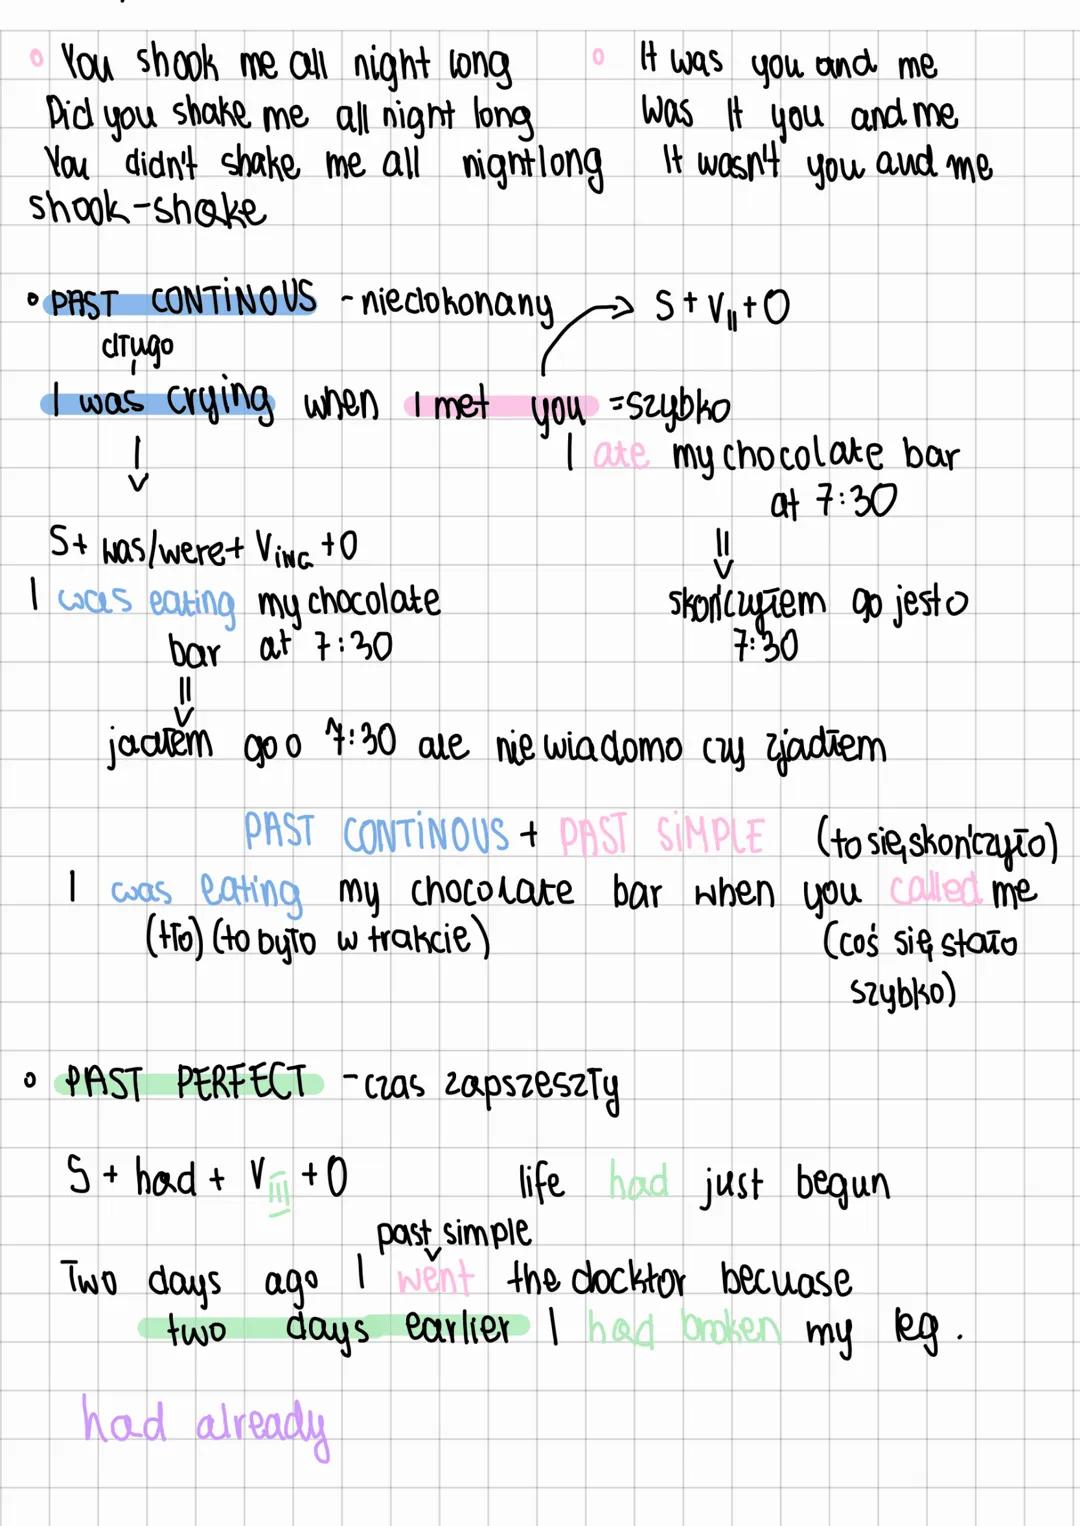 You shook me all night long
Did you shake me all night long
You didn't shake me all nightlong
shook-shake
It was you and me
Was It you and me
It wasn't you and me
PAST CONTINOUS - niedokonany
długo
S + V II + O
I was crying when I met you = szybko
I ate my chocolate bar
at 7:30
S + was/were + V ING + O
I was eating my chocolate
bar at 7:30
skończyłem go jest o
7:30
jadłem go o 7:30 ale nie wiadomo czy zjadłem
PAST CONTINOUS + PAST SIMPLE (to się skończyło)
I was eating my chocolate bar when you called me
(tło) (to było w trakcie)
(coś się stało
szybko)
PAST PERFECT - czas zapszeszły
S + had + V III + O
life had just begun
past simple
Two days ago I went the docktor becuase
two days earlier I had broken my leg.
had already